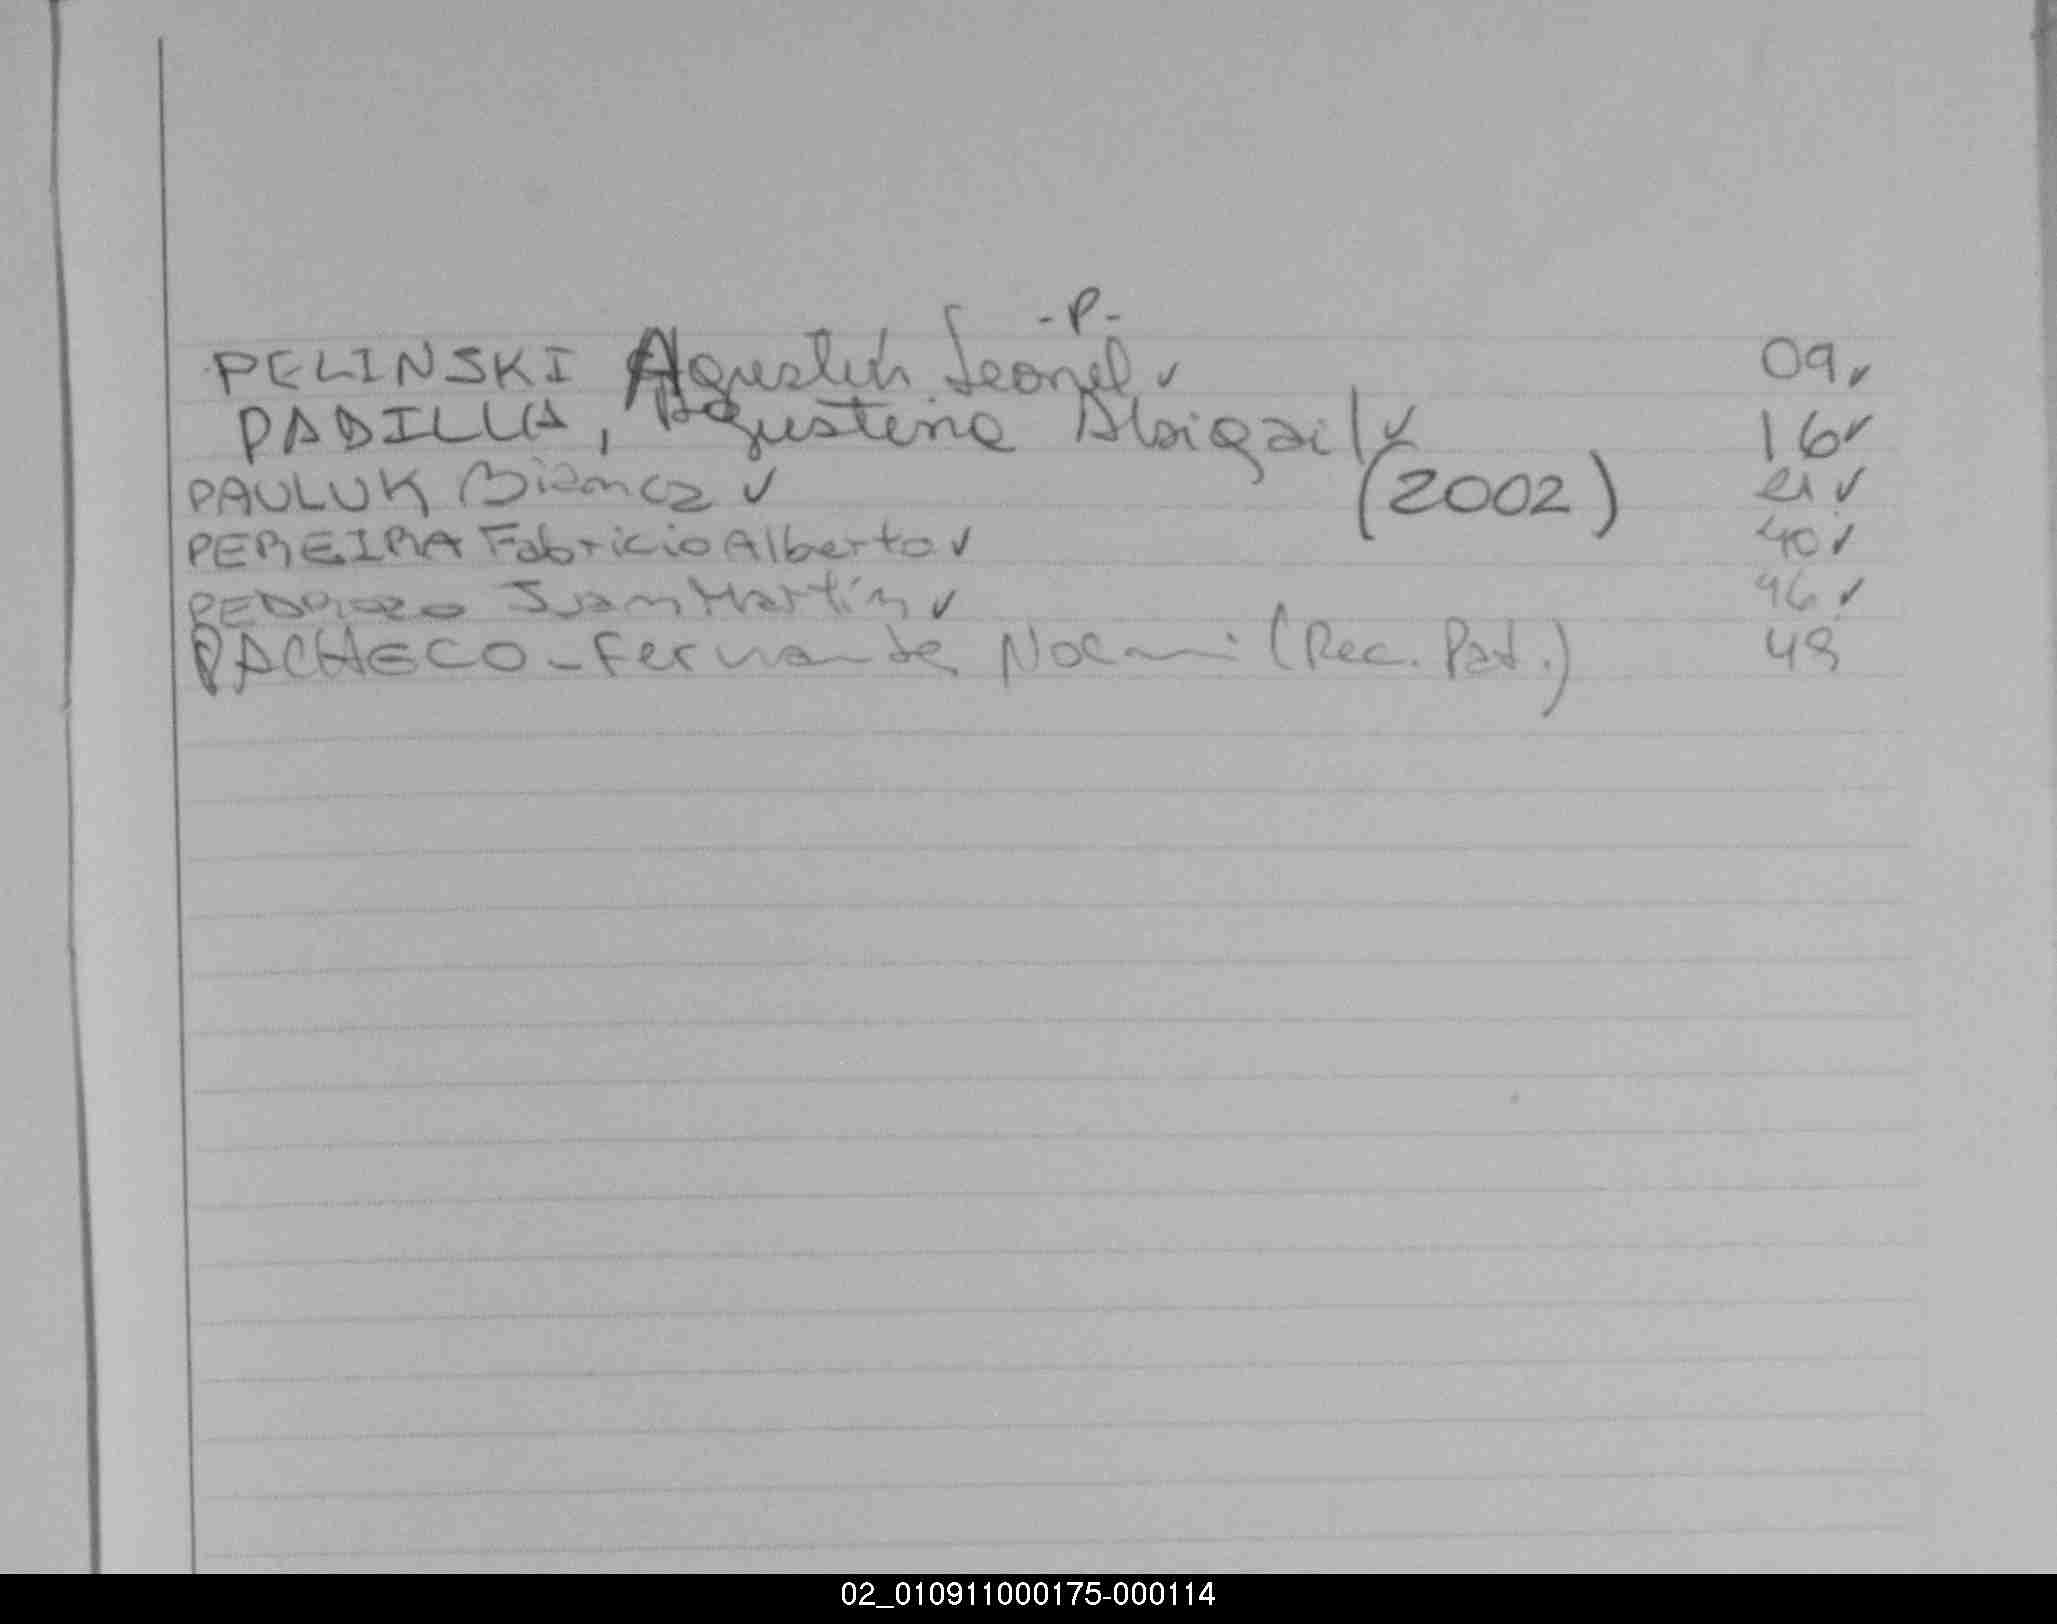 -P-
PELINSKI Agustín Leonel ✓ 09 ✓
PADILLA, Agustina Abigail ✓ 16 ✓
PAULUK Bianca ✓ (2002) 21 ✓
PEREIRA Fabricio Alberto ✓ 40 ✓
PEDROZO Juan Martín ✓ 46 ✓
PACHECO - Fernanda Noemi (Rec. Pat.) 48
02_010911000175-000114